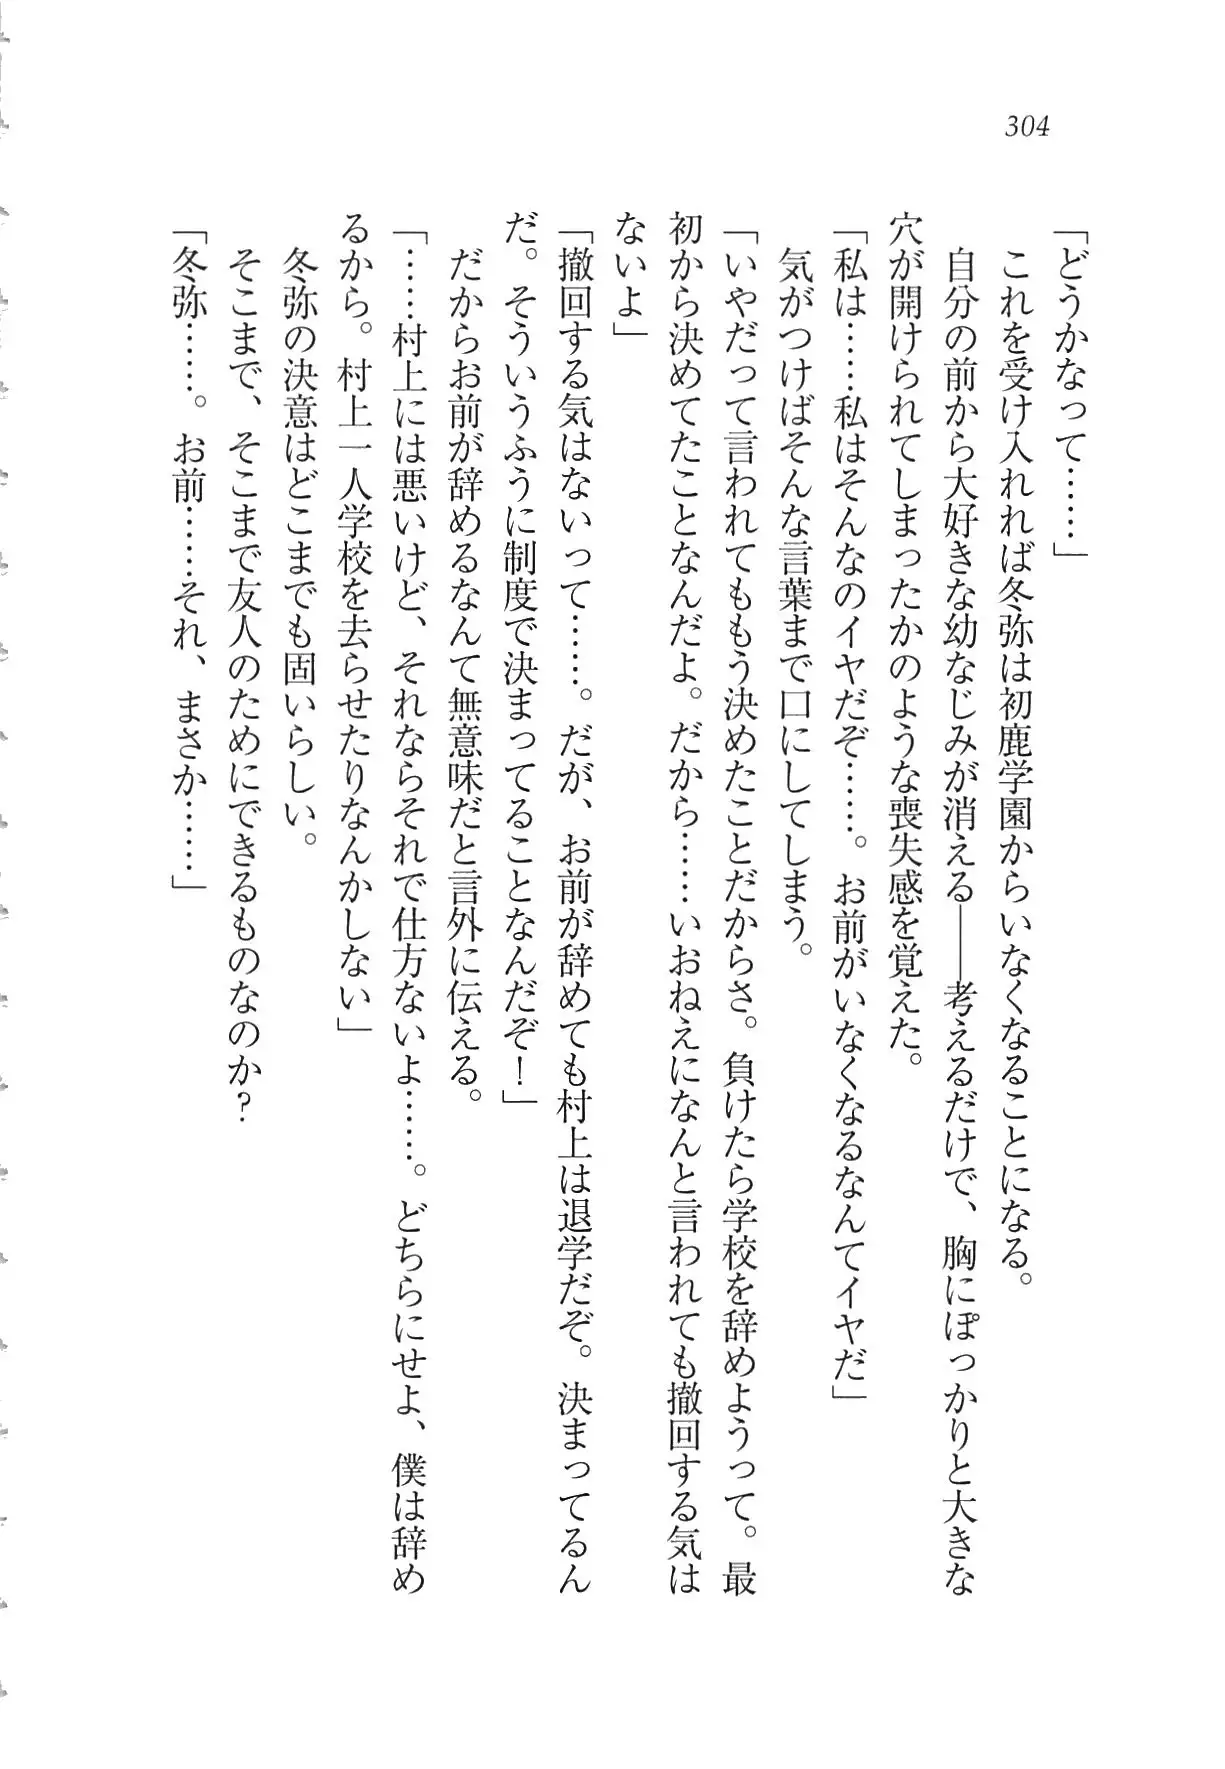 304
「どうかなって……」
これを受け入れれば冬弥は初鹿学園からいなくなることになる。
自分の前から大好きな幼なじみが消える――考えるだけで、胸にぽっかりと大きな
穴が開けられてしまったかのような喪失感を覚えた。
「私は……私はそんなのイヤだぞ……。お前がいなくなるなんてイヤだ」
気がつけばそんな言葉まで口にしてしまう。
「いやだって言われてももう決めたことだからさ。負けたら学校を辞めようって。最
初から決めてたことなんだよ。だから……いおねえになんと言われても撤回する気は
ないよ」
「撤回する気はないって……。だが、お前が辞めても村上は退学だぞ。決まってるん
だ。そういうふうに制度で決まってることなんだぞ！」
だからお前が辞めるなんて無意味だと言外に伝える。
「……村上には悪いけど、それならそれで仕方ないよ……。どちらにせよ、僕は辞め
るから。村上一人学校を去らせたりなんかしない」
冬弥の決意はどこまでも固いらしい。
そこまで、そこまで友人のためにできるものなのか？
「冬弥……。お前……それ、まさか……」